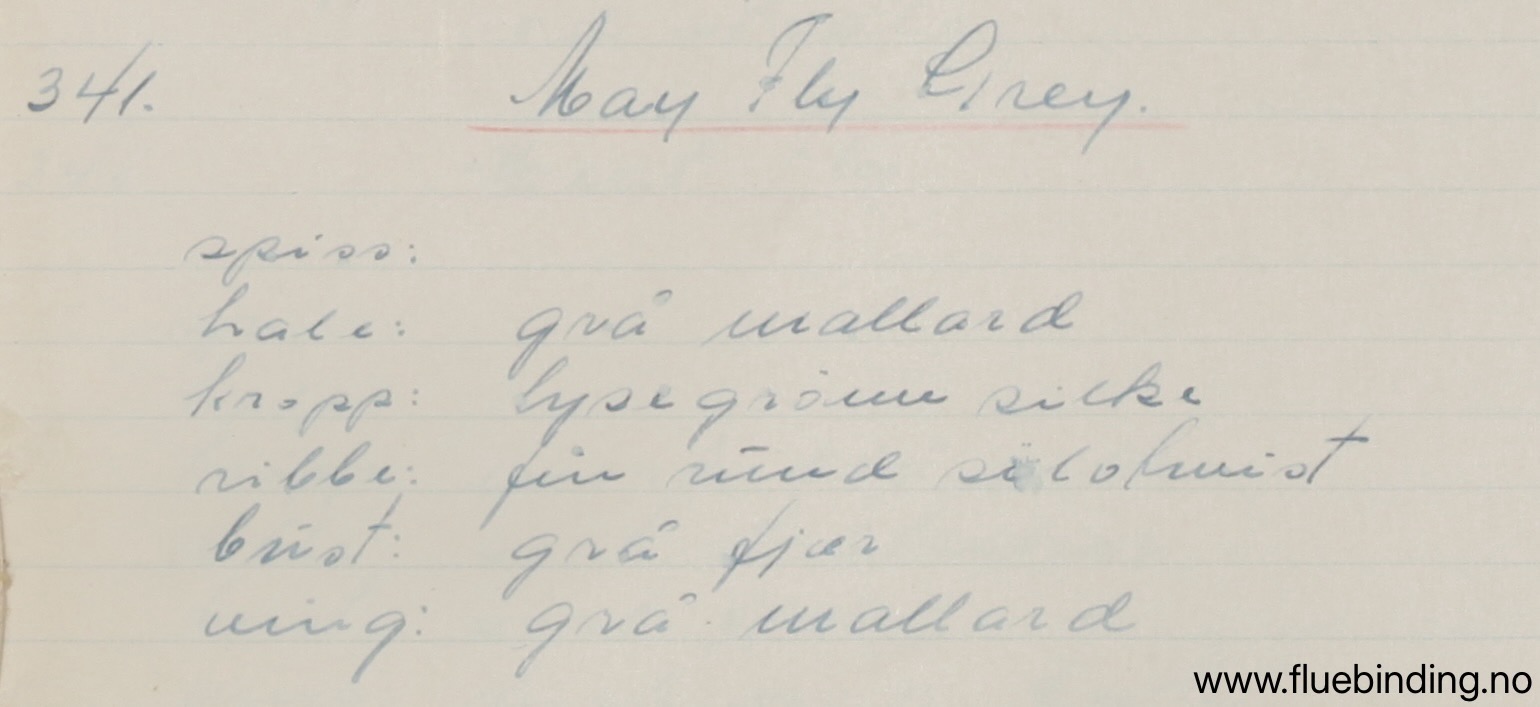 341. May Fly Grey.
spiss:
hale: grå mallard
kropp: lysegrönn silke
ribbe: fin rund sölvtwist
bust: grå fjær
ving: grå mallard
www.fluebinding.no